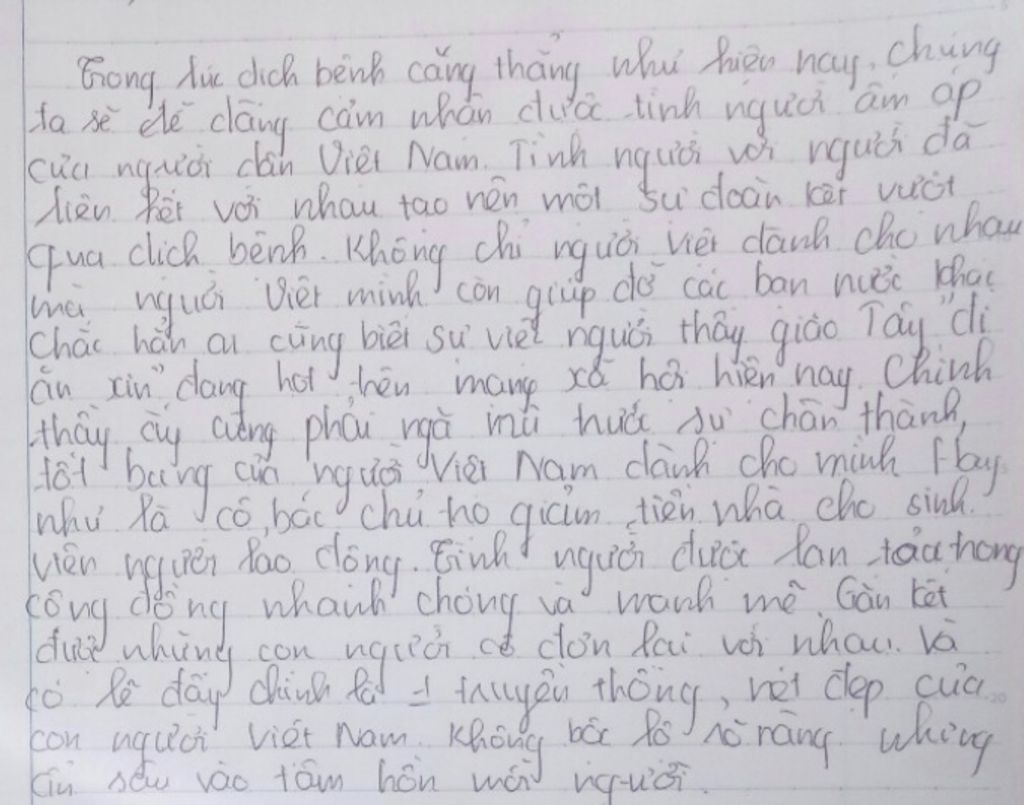 Trong lúc dịch bệnh căng thẳng như hiện nay, chúng
ta sẽ dễ dàng cảm nhận được tình người ấm áp
của người dân Việt Nam. Tình người với người đã
liên kết với nhau tạo nên một sự đoàn kết vượt
qua dịch bệnh. Không chỉ người Việt dành cho nhau
mà người Việt mình còn giúp đỡ các bạn nước khác
Chắc hẳn ai cũng biết sự việc người thầy giáo Tây "đi
ăn xin" đang hot trên mạng xã hội hiện nay. Chính
thầy ấy cũng phải ngả mũ trước sự chân thành,
tốt bụng của người Việt Nam dành cho mình. Hay
như là cô, bác chủ trọ giảm tiền nhà cho sinh
viên người lao động. Tình người được lan tỏa trong
cộng đồng nhanh chóng và mạnh mẽ. Gắn kết
được những con người cô đơn lại với nhau. Và
có lẽ đây chính là 1 truyền thống, nét đẹp của
con người Việt Nam. Không bộc lộ rõ ràng nhưng
ẩn sâu vào tâm hồn mỗi người.